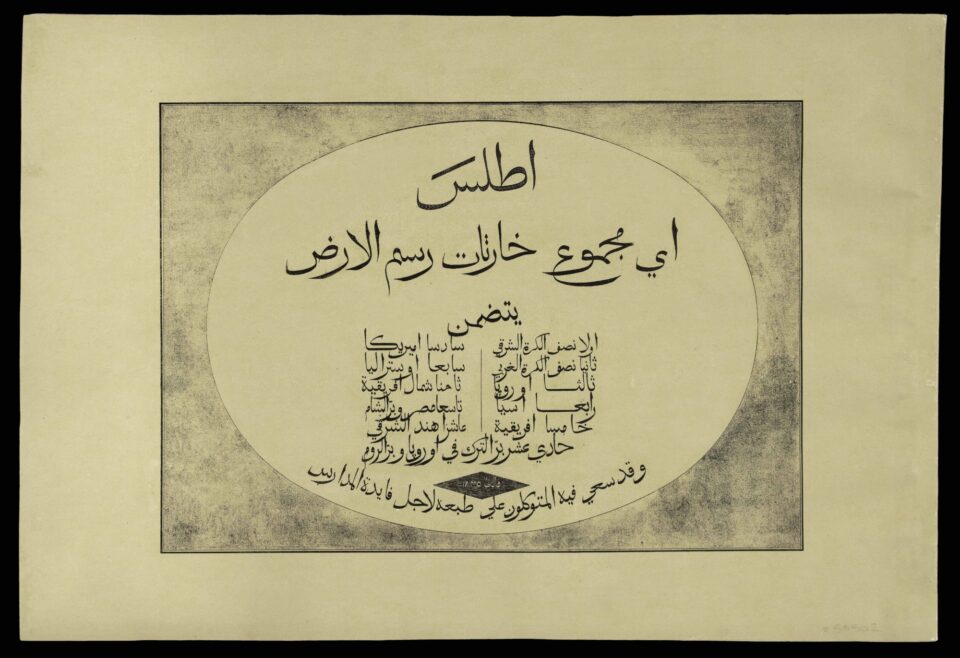 اطلس
اي مجموع خارتات رسم الارض
يتضمن
اولا نصف الكرة الشرقي
ثانيا نصف الكرة الغربي
ثالثا اوروپا
رابعا اسيا
خامسا افريقية
سادسا اميريكا
سابعا اوستراليا
ثامنا شمال افريقية
تاسعا مصر وبر الشام
عاشرا هند الشرقي
حادي عشر بر الترك في اوروپا وبر الروم
وقد سعي فيه المتوكلون علي طبعه لاجل فايدة المدارس